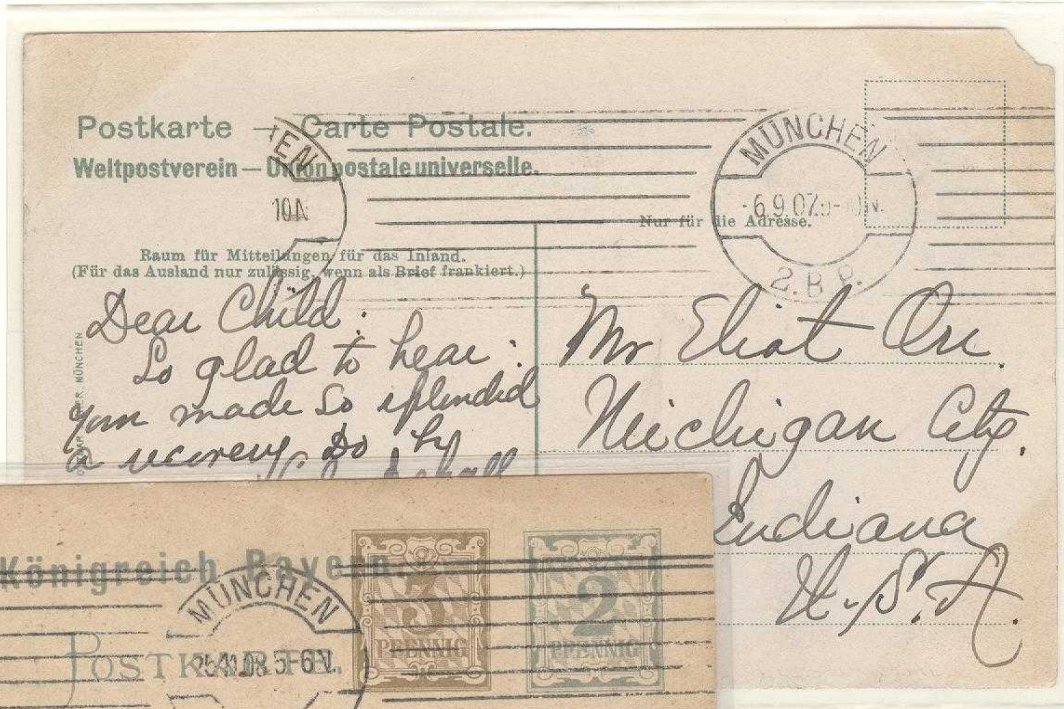 Postkarte — Carte Postale.
Weltpostverein — Union postale universelle.
IEN
10N
MÜNCHEN
6.9.07. 9-10N.
2.B.P.
Nur für die Adresse.
Raum für Mitteilungen für das Inland.
(Für das Ausland nur zulässig, wenn als Brief frankiert.)
MÜNCHEN
Dear Child:
So glad to hear
you made so splendid
a recovery. Do try
shall
Mr Eliot Orr
Michigan City.
Indiana
U.S.A.
Königreich Bayern.
POSTKARTE.
MÜNCHEN
08. 5-6N.
3
PFENNIG
2
PFENNIG